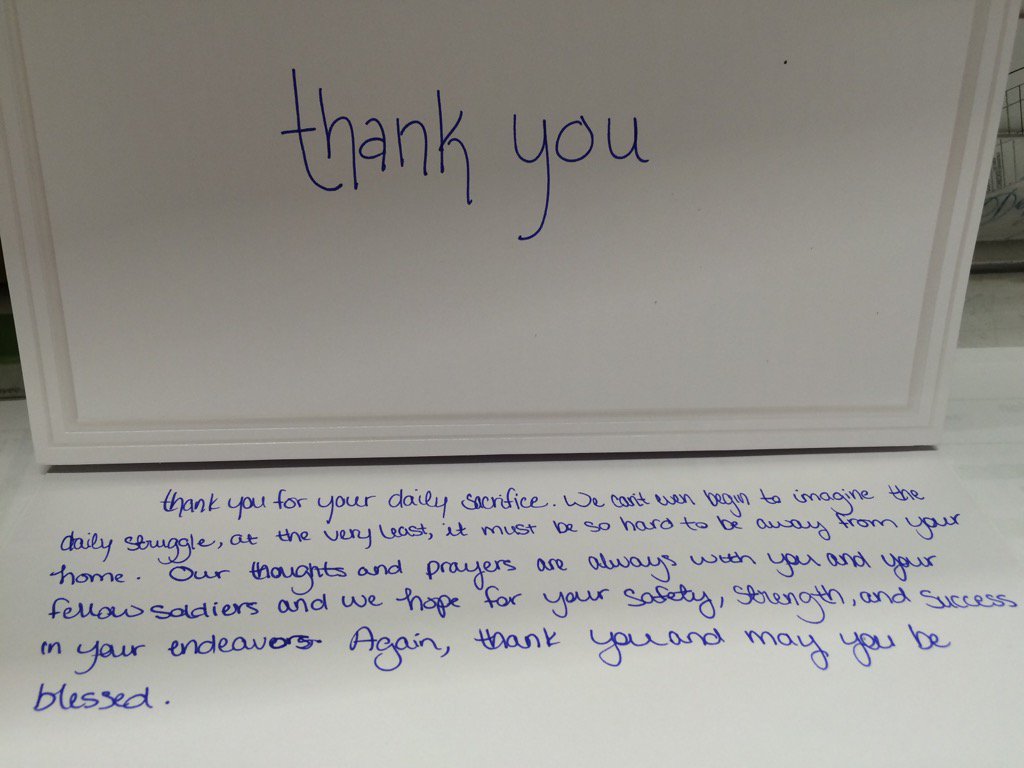 thank you
thank you for your daily sacrifice. We can't even begin to imagine the
daily struggle, at the very least, it must be so hard to be away from your
home. Our thoughts and prayers are always with you and your
fellow soldiers and we hope for your safety, strength, and success
in your endeavors. Again, thank you and may you be
blessed.